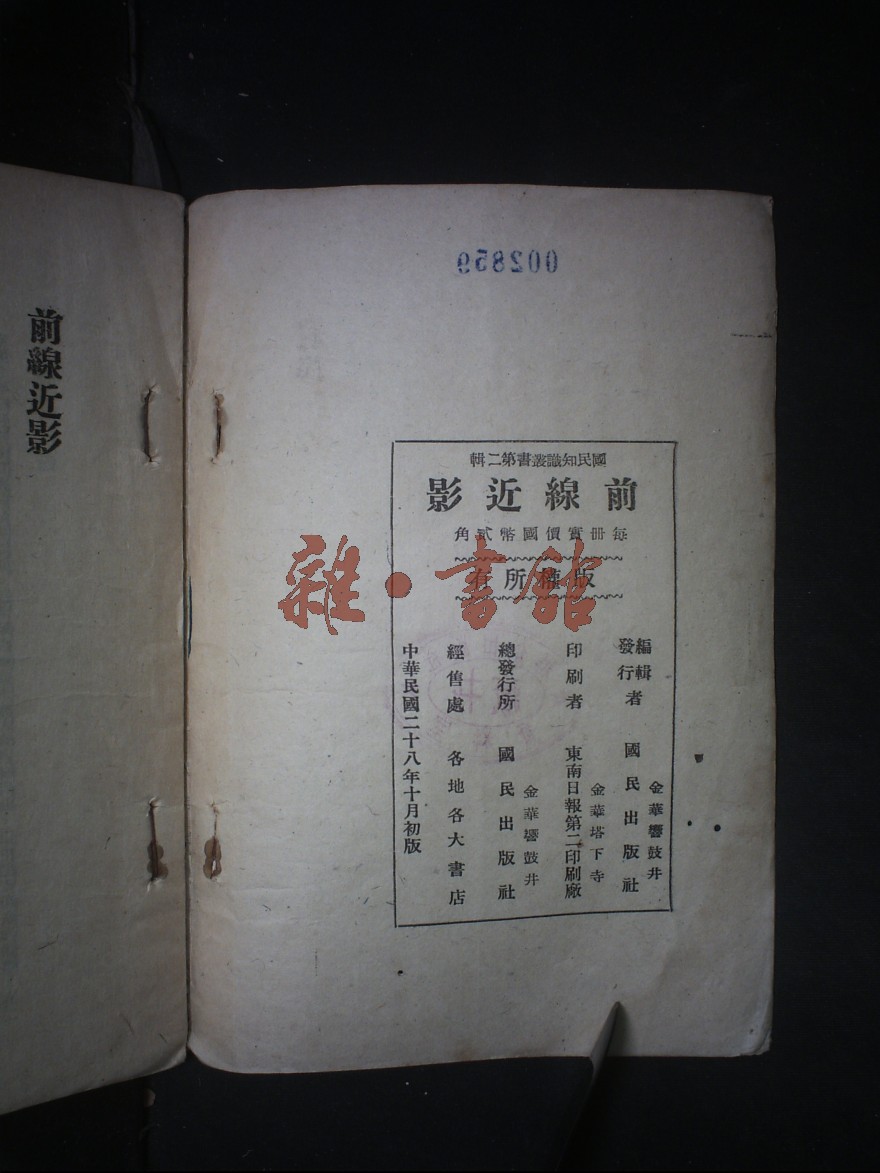 002859
國民知識叢書第二輯
前線近影
每冊實價國幣貳角
版權所有
編輯
發行者
國民出版社
金華響鼓井
印刷者
東南日報第二印刷廠
金華塔下寺
總發行所
國民出版社
金華響鼓井
經售處
各地各大書店
中華民國二十八年十月初版
前線近影
雜·書館